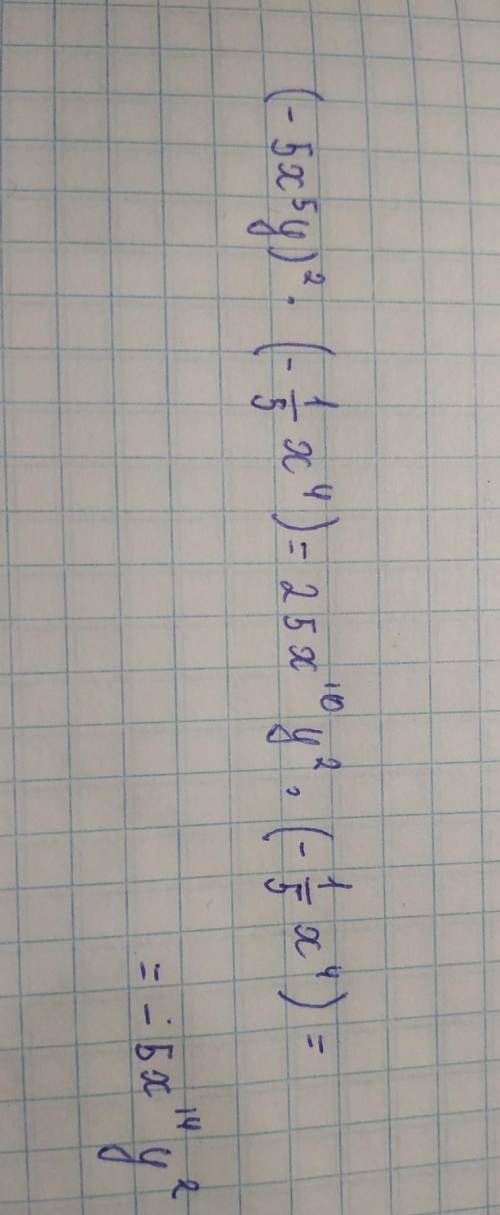 (-5x⁵y)² · (-1/5 x⁴) = 25x¹⁰y² · (-1/5 x⁴) =
= -5x¹⁴y²